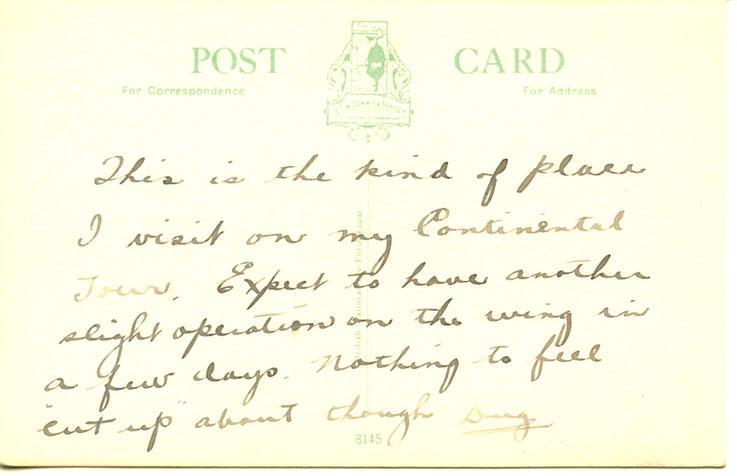 POST CARD
For Correspondence
For Address
This is the kind of place
I visit on my Continental
Tour. Expect to have another
slight operation on the wing in
a few days. Nothing to feel
"cut up" about though Dug
8145